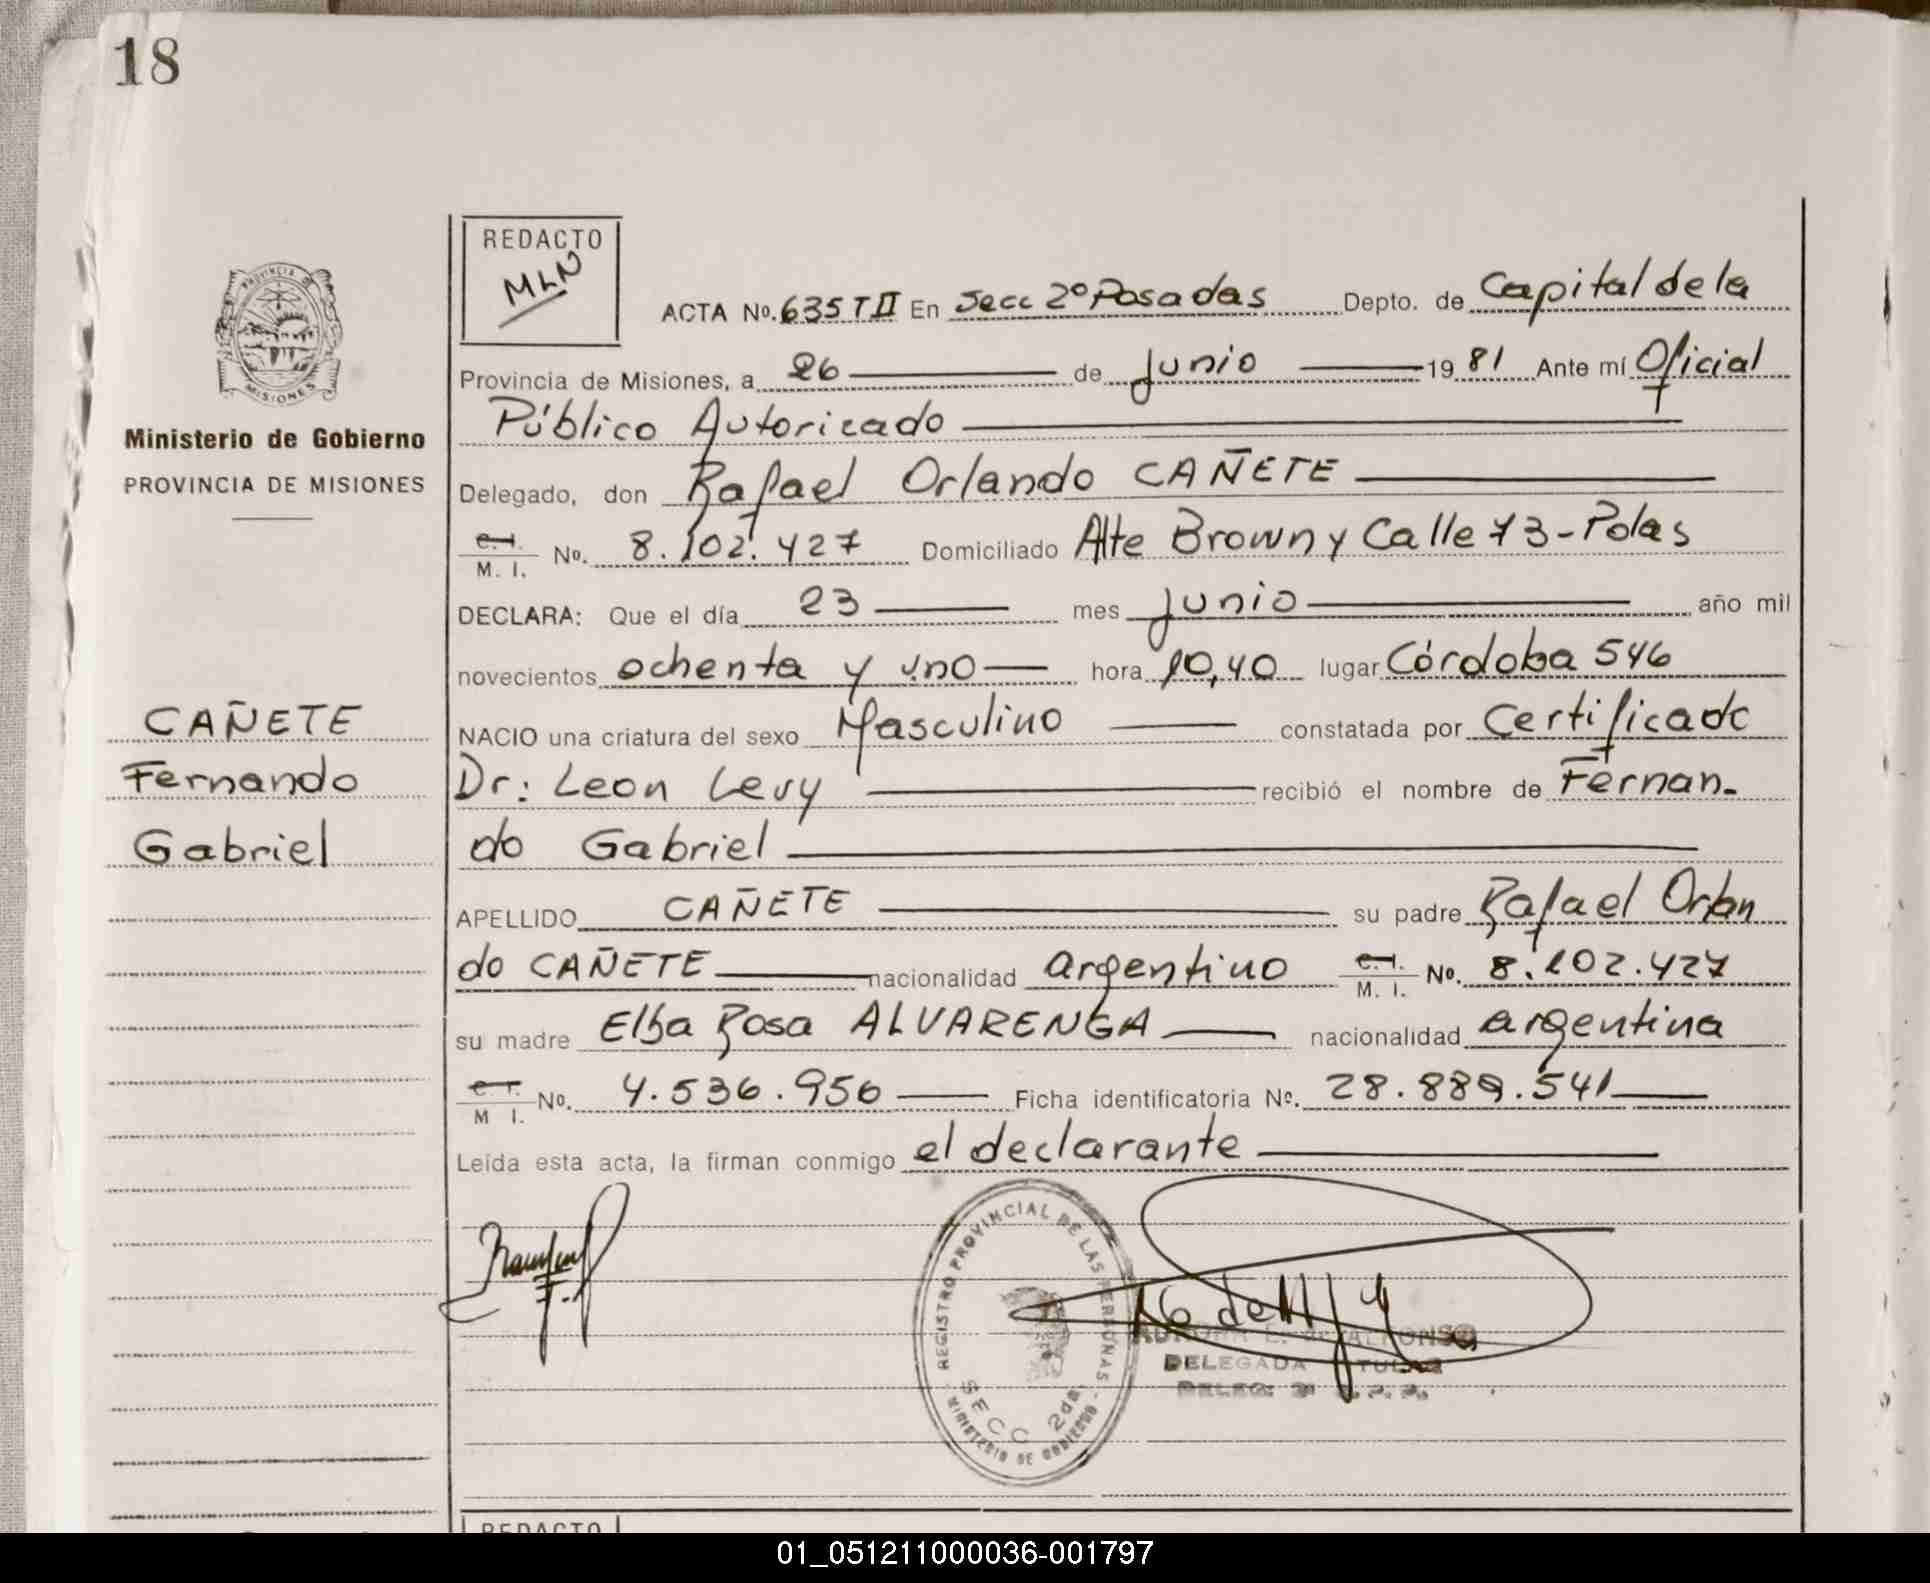 18
REDACTO
MLN
PROVINCIA DE
MISIONES
Ministerio de Gobierno
PROVINCIA DE MISIONES
CAÑETE
Fernando
Gabriel
ACTA No. 635 T II En Secc 2º Posadas Depto. de Capital de la
Provincia de Misiones, a 26 de Junio 19 81 Ante mí Oficial
Público Autorizado
Delegado, don Rafael Orlando CAÑETE
C. I. M. I. No. 8.102.427 Domiciliado Alte Brown y Calle 73 - Pdas
DECLARA: Que el día 23 mes Junio año mil
novecientos ochenta y uno hora 10,40 lugar Córdoba 546
NACIO una criatura del sexo Masculino constatada por Certificado
Dr: Leon Levy recibió el nombre de Fernan-
do Gabriel
APELLIDO CAÑETE su padre Rafael Orlan
do CAÑETE nacionalidad argentino C. I. M. I. No. 8.102.427
su madre Elba Rosa ALVARENGA nacionalidad argentina
C. I. M I. No. 4.536.956 Ficha identificatoria No. 28.889.541
Leída esta acta, la firman conmigo el declarante
REGISTRO PROVINCIAL DE LAS PERSONAS
SECC 2da.
MINISTERIO DE GOBIERNO
AURORA L. de ALFONSO
DELEGADA TITULAR
REDACTO
01_051211000036-001797